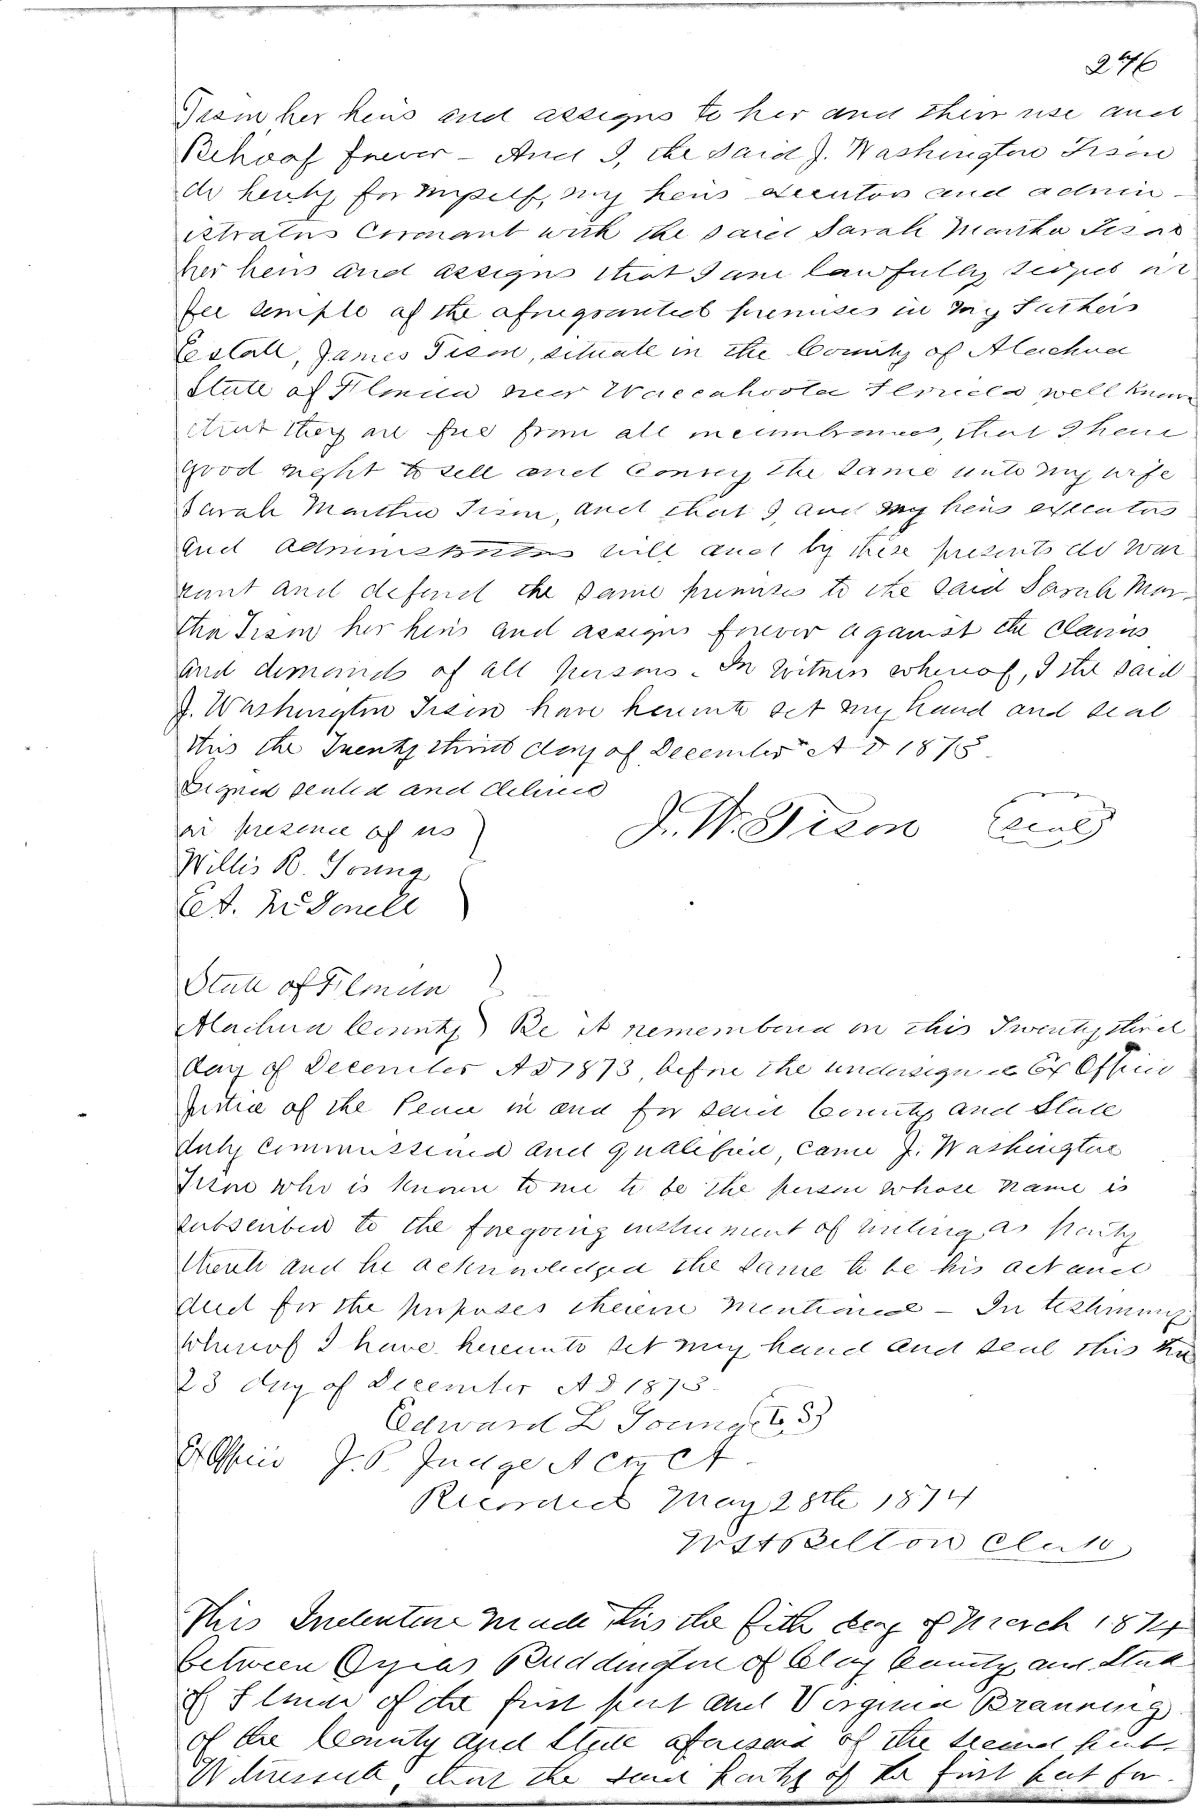 246
Tison her heirs and assigns to her and their use and
Behoof forever - And I, the said J. Washington Tison
do hereby for myself, my heirs executors and admin-
istrators Covenant with the said Sarah Martha Tison
her heirs and assigns that I am lawfully seized in
fee simple of the aforegranted premises in my Fathers
Estate, James Tison, situate in the County of Alachua
State of Florida near Waccahoota Florida well known
that they are free from all incumbrances, that I have
good right to sell and Convey the same unto my wife
Sarah Martha Tison, and that I, and my heirs executors
and administrators will and by these presents do war
rant and defend the same premises to the said Sarah Mar-
tha Tison her heirs and assigns forever against the claims
and demands of all persons. In witness whereof, I the said
J. Washington Tison have hereunto set my hand and seal
this the Twenty third day of December A D 1873.
Signed sealed and delivered
in presence of us
J. W. Tison (seal)
Willis R. Young
E A. McDonell
State of Florida
Alachua County } Be it remembered on this Twenty third
day of December A D 1873, before the undersigned Ex Officio
Justice of the Peace in and for said County and State
duly commissioned and qualified, came J. Washington
Tison who is known to me to be the person whose name is
subscribed to the foregoing instrument of writing as party
thereto and he acknowledged the same to be his act and
deed for the purposes therein mentioned - In testimony
whereof I have hereunto set my hand and seal this the
23 day of December A D 1873.
Edward L Young (L S)
Ex Officio J. P. Judge A Cty Ct.
Recorded May 28th 1874
Belton Clerk
This Indenture Made this the fifth day of March 1874
between Ozias Buddington of Clay County and State
of Florida of the first part and Virginia Branning
of the County and State aforesaid of the second part.
Witnesseth, that the said party of the first part for.